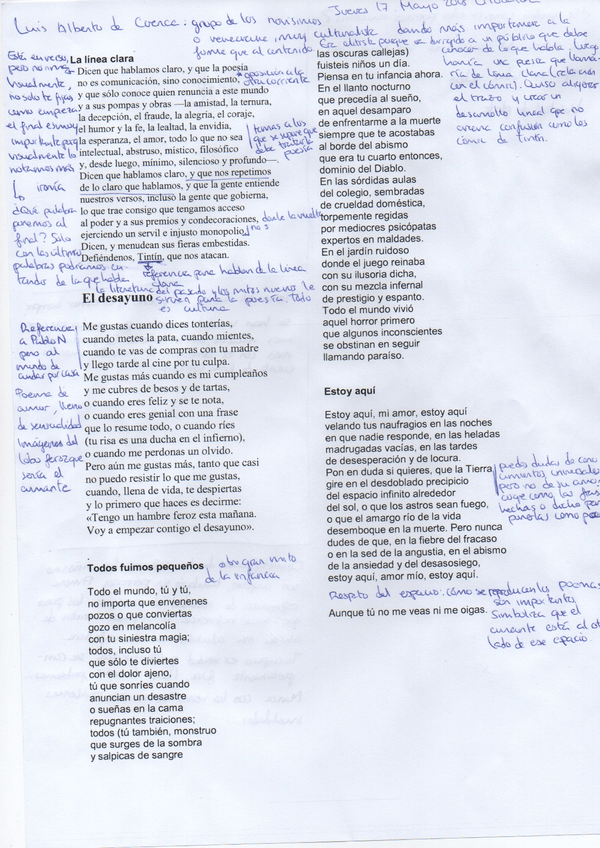 Jueves 17 Mayo 2018
Luis Alberto de Cuenca: grupo de los novísimos
o veneciano, muy culturalista dando más importancia a la
forma que al contenido. Era elitista porque se dirigía a un público que debe
conocer de lo que habla. Luego
haría una poesía que llama-
ría de línea clara (relaciona
con el cómic). Quiso
el trazo y crear un
desarrollo lineal que no
confusión como los
cómic de Tintín.
Está en verso,
pero no nos
visualmente,
no solo te fijas
como empieza
el final es muy
importante pq
visualmente lo
notamos más
ironía
¿Qué palabra
ponemos al
final? Solo
con las últimas
palabras podríamos en-
tender de lo que habla
La línea clara
Dicen que hablamos claro, y que la poesía
no es comunicación, sino conocimiento,
y que sólo conoce quien renuncia a este mundo
y a sus pompas y obras —la amistad, la ternura,
la decepción, el fraude, la alegría, el coraje,
el humor y la fe, la lealtad, la envidia,
la esperanza, el amor, todo lo que no sea
intelectual, abstruso, místico, filosófico
y, desde luego, mínimo, silencioso y profundo—.
Dicen que hablamos claro, y que nos repetimos
de lo claro que hablamos, y que la gente entiende
nuestros versos, incluso la gente que gobierna,
lo que trae consigo que tengamos acceso
al poder y a sus premios y condecoraciones,
ejerciendo un servil e injusto monopolio.
Dicen, y menudean sus fieras embestidas.
Defiéndenos, Tintín, que nos atacan.
oposición a la
otra corriente
temas a los
que se supone que
debe tratar la
poesía
donde la vuelta
referencia para hablar de la línea
clara
la literatura del pasado y los mitos nuevos le
sirven para la poesía, todo
es cultura
El desayuno
Me gustas cuando dices tonterías,
cuando metes la pata, cuando mientes,
cuando te vas de compras con tu madre
y llego tarde al cine por tu culpa.
Me gustas más cuando es mi cumpleaños
y me cubres de besos y de tartas,
o cuando eres feliz y se te nota,
o cuando eres genial con una frase
que lo resume todo, o cuando ríes
(tu risa es una ducha en el infierno),
o cuando me perdonas un olvido.
Pero aún me gustas más, tanto que casi
no puedo resistir lo que me gustas,
cuando, llena de vida, te despiertas
y lo primero que haces es decirme:
«Tengo un hambre feroz esta mañana.
Voy a empezar contigo el desayuno».
Referencia
a Pablo N
pero al
mundo de
Poema de
amor, lleno
de sensualidad
Imágenes del
lobo feroz que
sería el
amante
Todos fuimos pequeños
otro gran mito
de la infancia
Todo el mundo, tú y tú,
no importa que envenenes
pozos o que conviertas
gozo en melancolía
con tu siniestra magia;
todos, incluso tú
que sólo te diviertes
con el dolor ajeno,
tú que sonríes cuando
anuncian un desastre
o sueñas en la cama
repugnantes traiciones;
todos (tú también, monstruo
que surges de la sombra
y salpicas de sangre
las oscuras callejas)
fuisteis niños un día.
Piensa en tu infancia ahora.
En el llanto nocturno
que precedía al sueño,
en aquel desamparo
de enfrentarme a la muerte
siempre que te acostabas
al borde del abismo
que era tu cuarto entonces,
dominio del Diablo.
En las sórdidas aulas
del colegio, sembradas
de crueldad doméstica,
torpemente regidas
por mediocres psicópatas
expertos en maldades.
En el jardín ruidoso
donde el juego reinaba
con su ilusoria dicha,
con su mezcla infernal
de prestigio y espanto.
Todo el mundo vivió
aquel horror primero
que algunos inconscientes
se obstinan en seguir
llamando paraíso.
Estoy aquí
Estoy aquí, mi amor, estoy aquí
velando tus naufragios en las noches
en que nadie responde, en las heladas
madrugadas vacías, en las tardes
de desesperación y de locura.
Pon en duda si quieres, que la Tierra
gire en el desdoblado precipicio
del espacio infinito alrededor
del sol, o que los astros sean fuego,
o que el amargo río de la vida
desemboque en la muerte. Pero nunca
dudes de que, en la fiebre del fracaso
o en la sed de la angustia, en el abismo
de la ansiedad y del desasosiego,
estoy aquí, amor mío, estoy aquí.
Aunque tú no me veas ni me oigas.
puedes dudar de cono-
cimientos universales
pero no de su amor,
coge como las frases
hechas o dichos por
poetas como
Respeto del espacio: cómo se reproducen los poemas
son importantes.
Simboliza que el
amante está al otro
lado de ese espacio.